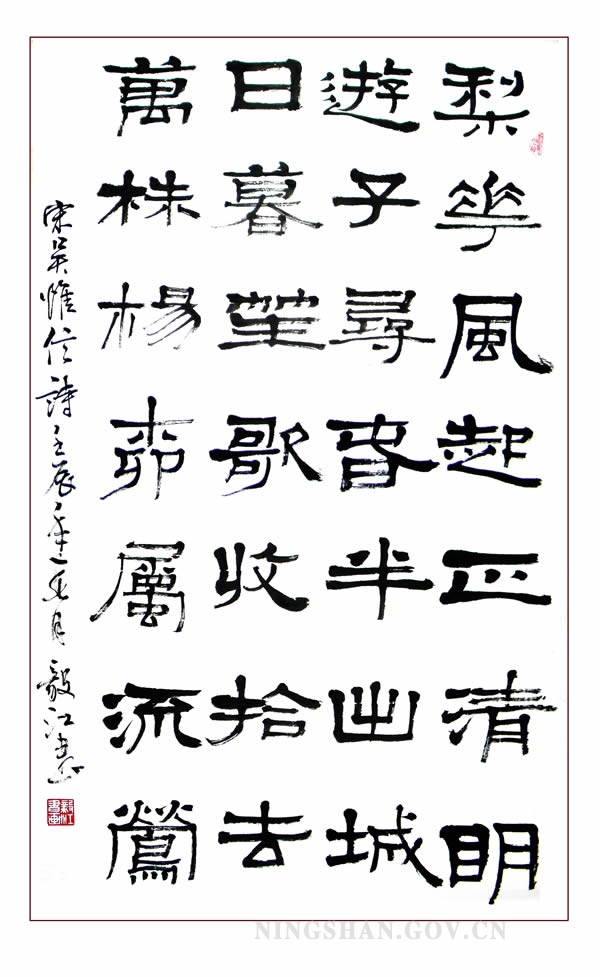 梨華風起正清明
遊子尋春半出城
日暮笙歌收拾去
萬株楊柳屬流鶯
宋吴惟信詩壬辰年月毅江書
毅江書畫
NINGSHAN.GOV.CN